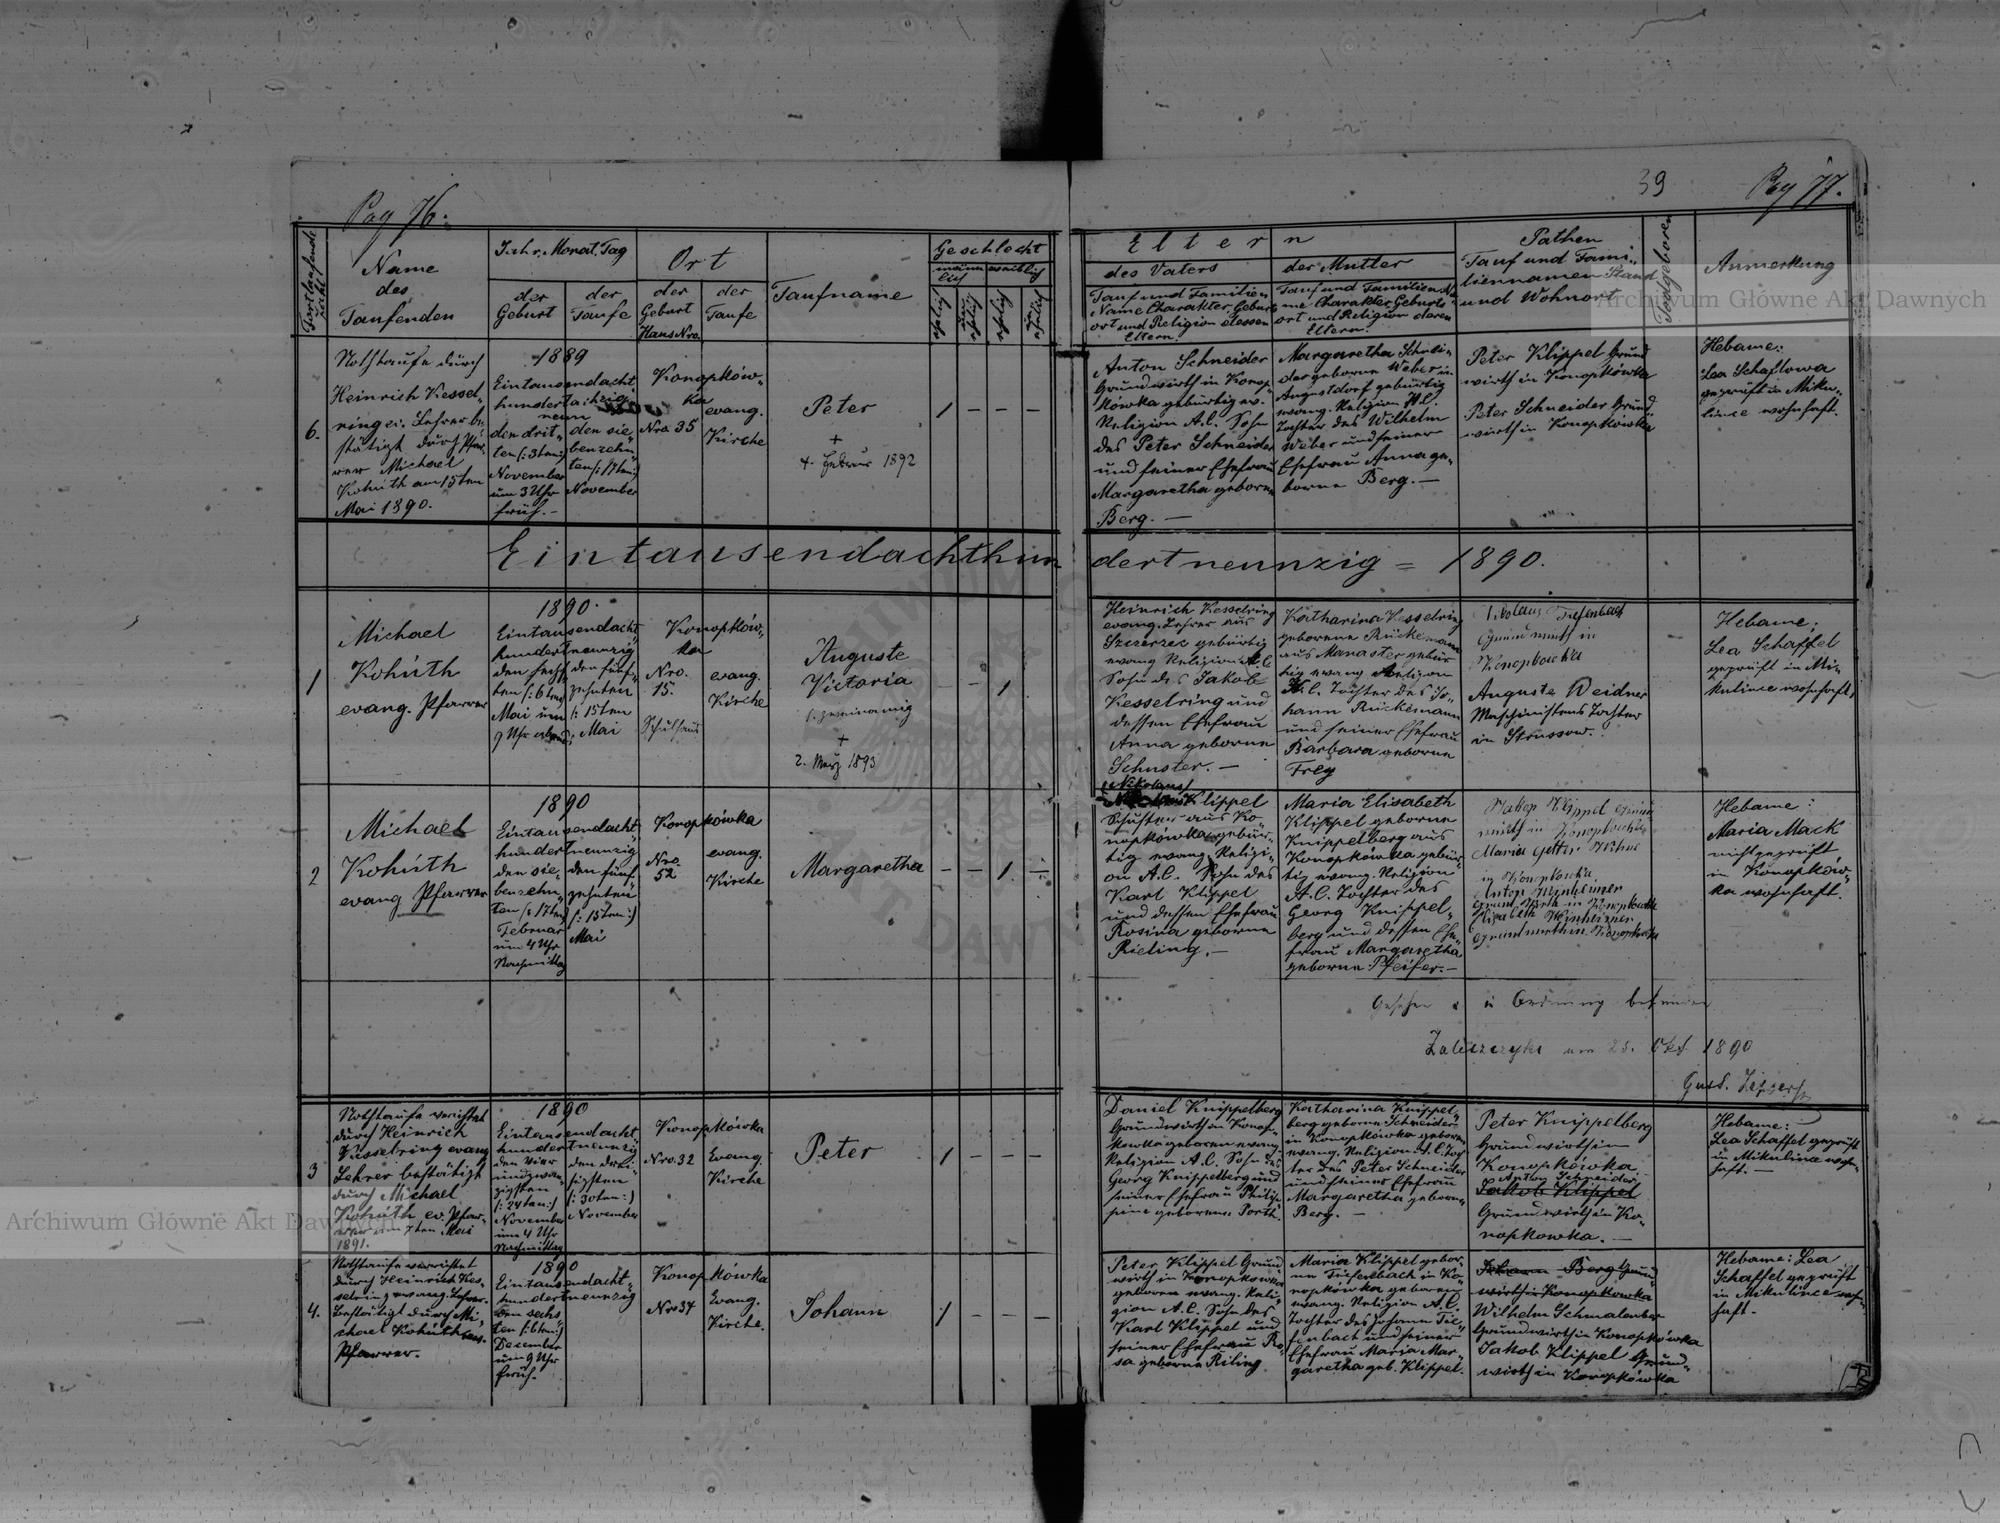 Pag 76.
39
Pag 77.
Fortlaufende Zahl
Name
des
Taufenden
Jahr, Monat, Tag
der Geburt
der Taufe
Ort
der Geburt
Haus Nro.
der Taufe
Taufname
Geschlecht
männlich
weiblich
ehelich
unehelich
ehelich
unehelich
Eltern
des Vaters
Tauf und Familien
Name Charakter, Geburts
ort und Religion dessen
Eltern
der Mutter
Tauf und Familien Na
me Charakter, Geburts
ort und Religion deren
Eltern
Pathen
Tauf und Fami-
liennamen Stand
und Wohnort
Todtgeboren
Anmerkung
6.
Nothtaufe durch
Heinrich Kessel-
ring ev. Lehrer be-
stätigt durch Pfar-
rer Michael
Kohúth am 15ten
Mai 1890.
1889
Eintausendacht-
hundertachzig
neun
den drit-
ten (: 3ten:)
November
um 3 Uhr
früh.-
den sie-
benzehn-
ten (: 17ten:)
November
Konopków-
ka
Nro 35
evang.
Kirche
Peter
+
4. Februar 1892
1 – – –
Anton Schneider
Grundwirth in Konop-
kówka gebürtig ev.
Religion A.C. Sohn
des Peter Schneider
und seiner Ehefrau
Margaretha geborne
Berg. —
Margaretha Schnei-
der geborne Weber in
Augustdorf gebürtig
evang. Religion A.C.
Tochter des Wilhelm
Weber und seiner
Ehefrau Anna ge-
borne Berg. —
Peter Klippel Grund
wirth in Konopkówka
Peter Schneider Grund-
wirth in Konopkówka
Hebame:
Lea Schaflowa
geprüft in Miku-
lince wohnhaft.
Eintausendachthundertneunzig = 1890.
1
Michael
Kohúth
evang. Pfarrer
1890.
Eintausendacht-
hundertneunzig
den sechs-
ten (: 6ten:)
Mai um
9 Uhr abends
den fünf-
zehnten
(: 15ten
Mai
Konopków-
ka
Nro.
15.
Schulhaus
evang.
Kirche
Auguste
Victoria
(: zweinamig
+
2. März 1893
– – 1
Heinrich Kesselring
evang. Lehrer aus
Szczerzec gebürtig
evang Religion A.C.
Sohn des Jakob
Kesselring und
dessen Ehefrau
Anna geborne
Schuster. —
Katharina Kesselring
geborene Rückemann
aus Monaster gebür-
tig evang Religion
A.C. Tochter des Jo-
hann Rückemann
und seiner Ehefrau
Barbara geborne
Frey
Nikolaus Tiefenbach
Grundwirth in
Konopkowka
Auguste Weidner
Maschinistens Tochter
in Strussow.
Hebame:
Lea Schaffel
geprüft in Mi-
kulince wohnhaft.
2
Michael
Kohúth
evang Pfarrer
1890
Eintausendacht-
hundertneunzig
den sie-
benzehn-
ten (: 17ten)
Februar
um 4 Uhr
Nachmittag
den fünf-
zehnten
(: 15ten:)
Mai
Konopkówka
Nro.
52
evang.
Kirche
Margaretha
– – 1. –
(Nikolaus)
Klippel
Schuster aus Ko-
nopkówka gebür-
tig evang. Religi-
on A.C. Sohn des
Karl Klippel
und dessen Ehefrau
Rosina geborne
Rieling. —
Maria Elisabeth
Klippel geborne
Knippelberg aus
Konopkówka gebür-
tig evang. Religion
A.C. Tochter des
Georg Knippel-
berg und dessen Ehe-
frau Margaretha
geborne Pfeifer. —
Jakob Klippel Grund
wirth in Konopkowka
Maria
in Konopkowka
Anton Weinheimer
Grundwirth in Konopkowka
Elisabeth Weinheimer
Grundwirthin Konopkowka
Hebame:
Maria Mack
nicht geprüft
in Konopków-
ka wohnhaft.
Gesehen u. in Ordnung befunden
Zaleszczyki am 25. Okt. 1890
3
Nothtaufe verrichtet
durch Heinrich
Kesselring evang
Lehrer bestätigt
durch Michael
Kohúth ev. Pfar-
rer am 7ten Mai
1891.
1890
Eintausendacht-
hundertneunzig
den vier
undzwan-
zigsten
(: 24ten:)
November
um 4 Uhr
Nachmittag
den drei-
ßigsten
(: 30ten:)
November
Konopkówka
Nro. 32
Evang.
Kirche
Peter
1 – – –
Daniel Knippelberg
Grundwirth in Konop-
kowka geboren evang.
Religion A.C. Sohn des
Georg Knippelberg und
seiner Ehefrau Philip-
pine geborene Porth.
Katharina Knippel-
berg geborne Schneider
in Konopkówka geboren
evang. Religion A.C. Toch
ter des Peter Schneider
und seiner Ehefrau
Margaretha geborne
Berg. —
Peter Knippelberg
Grundwirth in
Konopkowka.
Anton Schneider
Jakob Klippel
Grundwirth in Ko-
nopkowka. —
Hebame:
Lea Schaffel geprüft
in Mikulince wohn-
haft. —
4.
Nothtaufe verrichtet
durch Heinrich Kes-
selring evang. Lehrer.
Bestätigt durch Mi-
chael Kohúth ev.
Pfarrer.
1890
Eintausendacht-
hundertneunzig
den sechs
ten (: 6ten:)
December
um 9 Uhr
früh.
Konopkówka
Nro 37
Evang.
Kirche.
Johann
1 – – –
Peter Klippel Grund-
wirth in Konopkowka
geboren evang. Reli-
gion A.C. Sohn des
Karl Klippel und
seiner Ehefrau Ro-
sa geborne Riling.
Maria Klippel gebor-
ne Tiefenbach in Ko-
nopkówka geboren
evang. Religion A.C.
Tochter des Johann Tie-
fenbach und seiner
Ehefrau Maria Mar-
garetha geb. Klippel.
Johann Berg Grund-
wirth in Konopkowka
Wilhelm Schmalenber
Grundwirth in Konopkówka
Jakob Klippel Grund-
wirth in Konopkówka
Hebame: Lea
Schaffel geprüft
in Mikulince wohn-
haft.
Archiwum Główne Akt Dawnych
Archiwum Główne Akt Dawnych